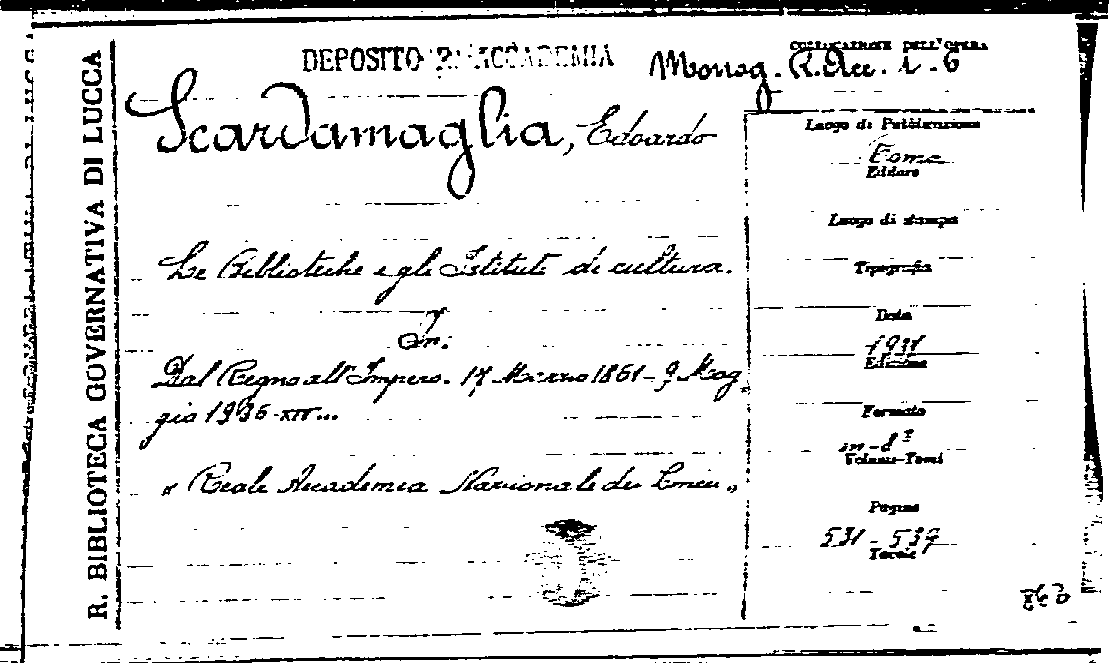 R. BIBLIOTECA GOVERNATIVA DI LUCCA
DEPOSITO R. ACCADEMIA
COLLOCAZIONE DELL'OPERA
Monog. R. Acc. 1-6
Scardamaglia, Edoardo
Luogo di Pubblicazione
Roma
Editore
Luogo di stampa
Le Biblioteche e gli Istituti di cultura.
Tipografia
Data
In:
1937
Edizione
Dal Regno all'Impero. 17 Marzo 1861 - 9 Mag
gio 1936-XIV...
Formato
in-8º
Volumi-Tomi
« Reale Accademia Nazionale dei Lincei »
Pagine
531 - 539
Tavole